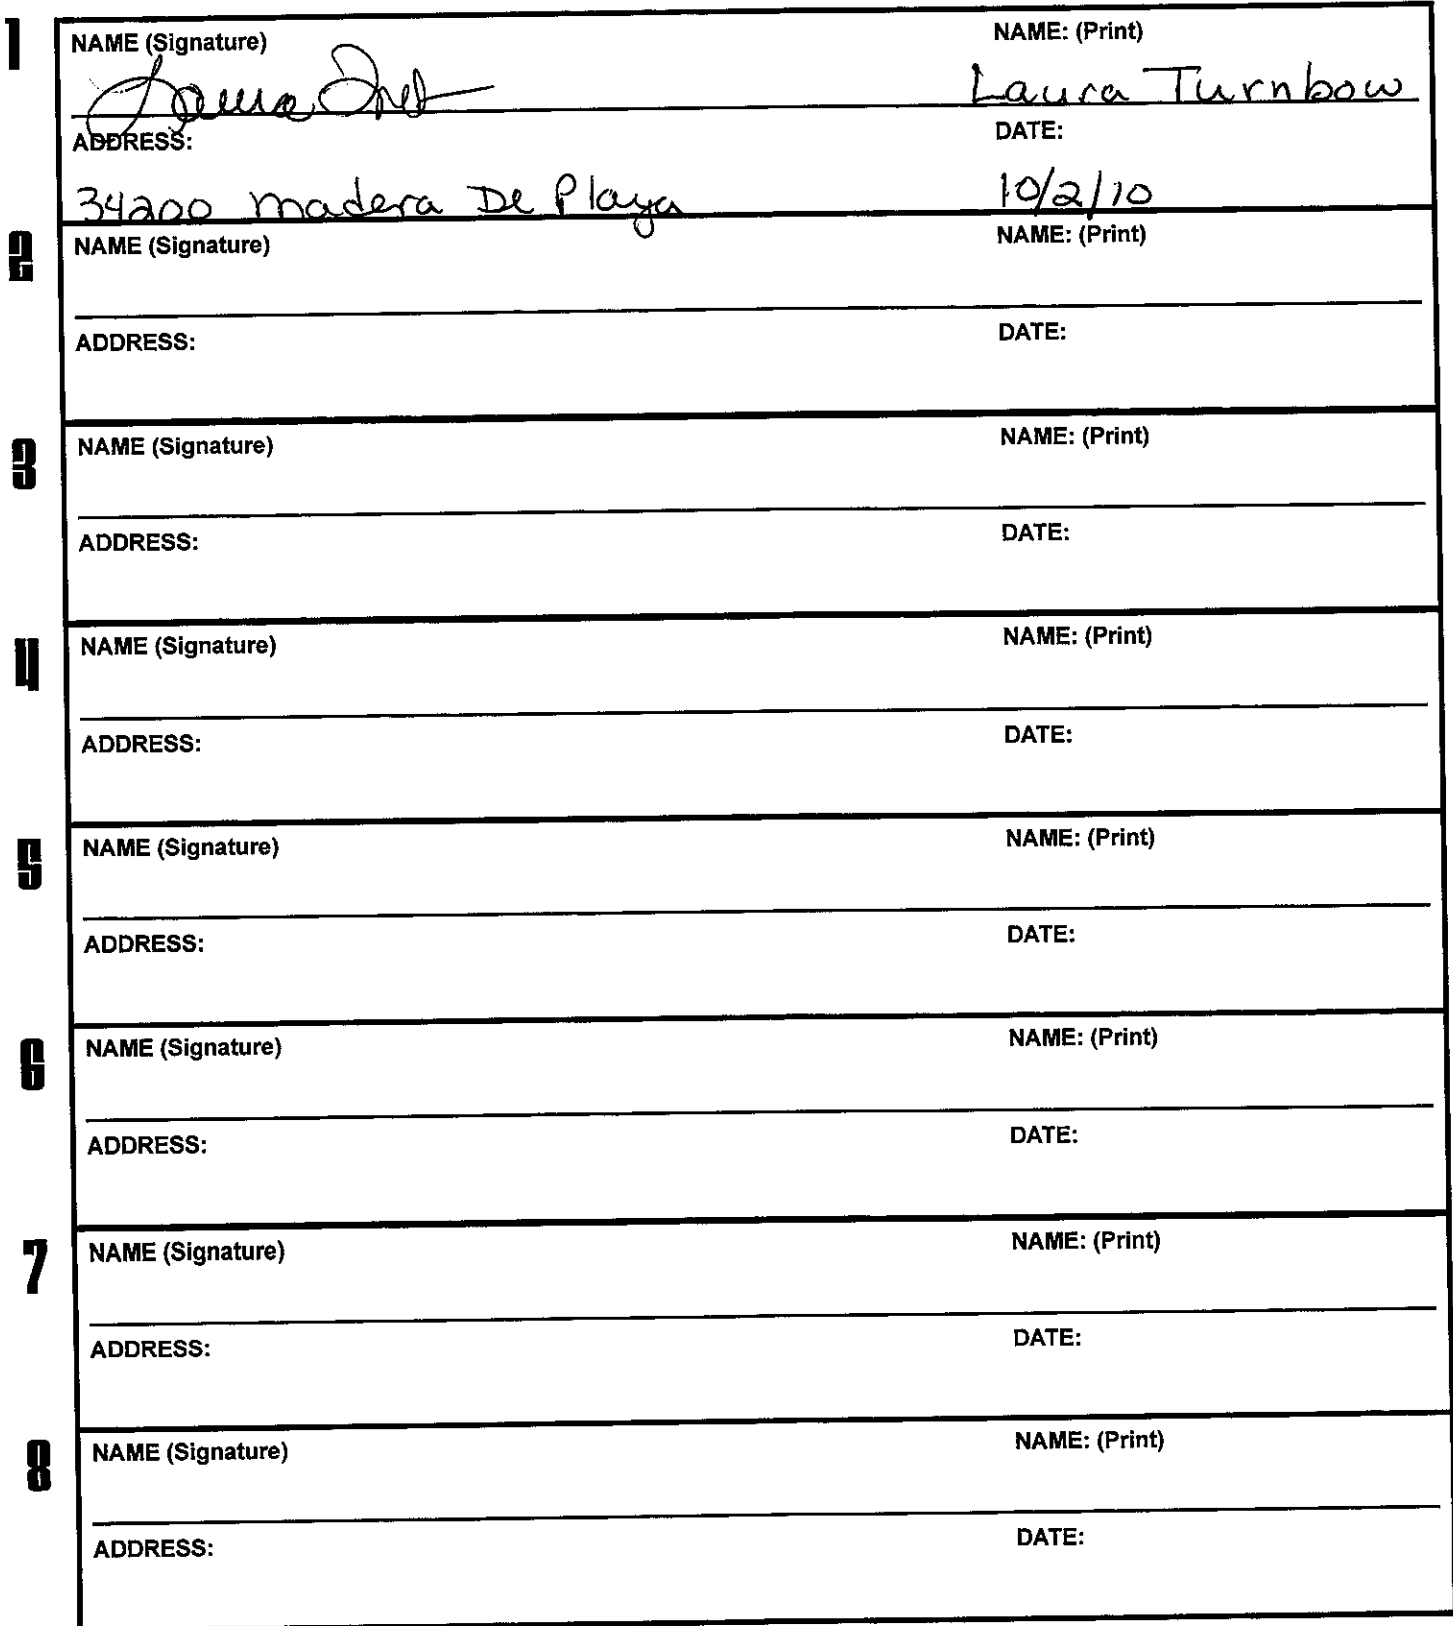 1
NAME (Signature) NAME: (Print)
Laura Turnbow
ADDRESS: DATE:
34200 Madera De Playa 10/2/10
2
NAME (Signature) NAME: (Print)
ADDRESS: DATE:
3
NAME (Signature) NAME: (Print)
ADDRESS: DATE:
4
NAME (Signature) NAME: (Print)
ADDRESS: DATE:
5
NAME (Signature) NAME: (Print)
ADDRESS: DATE:
6
NAME (Signature) NAME: (Print)
ADDRESS: DATE:
7
NAME (Signature) NAME: (Print)
ADDRESS: DATE:
8
NAME (Signature) NAME: (Print)
ADDRESS: DATE: